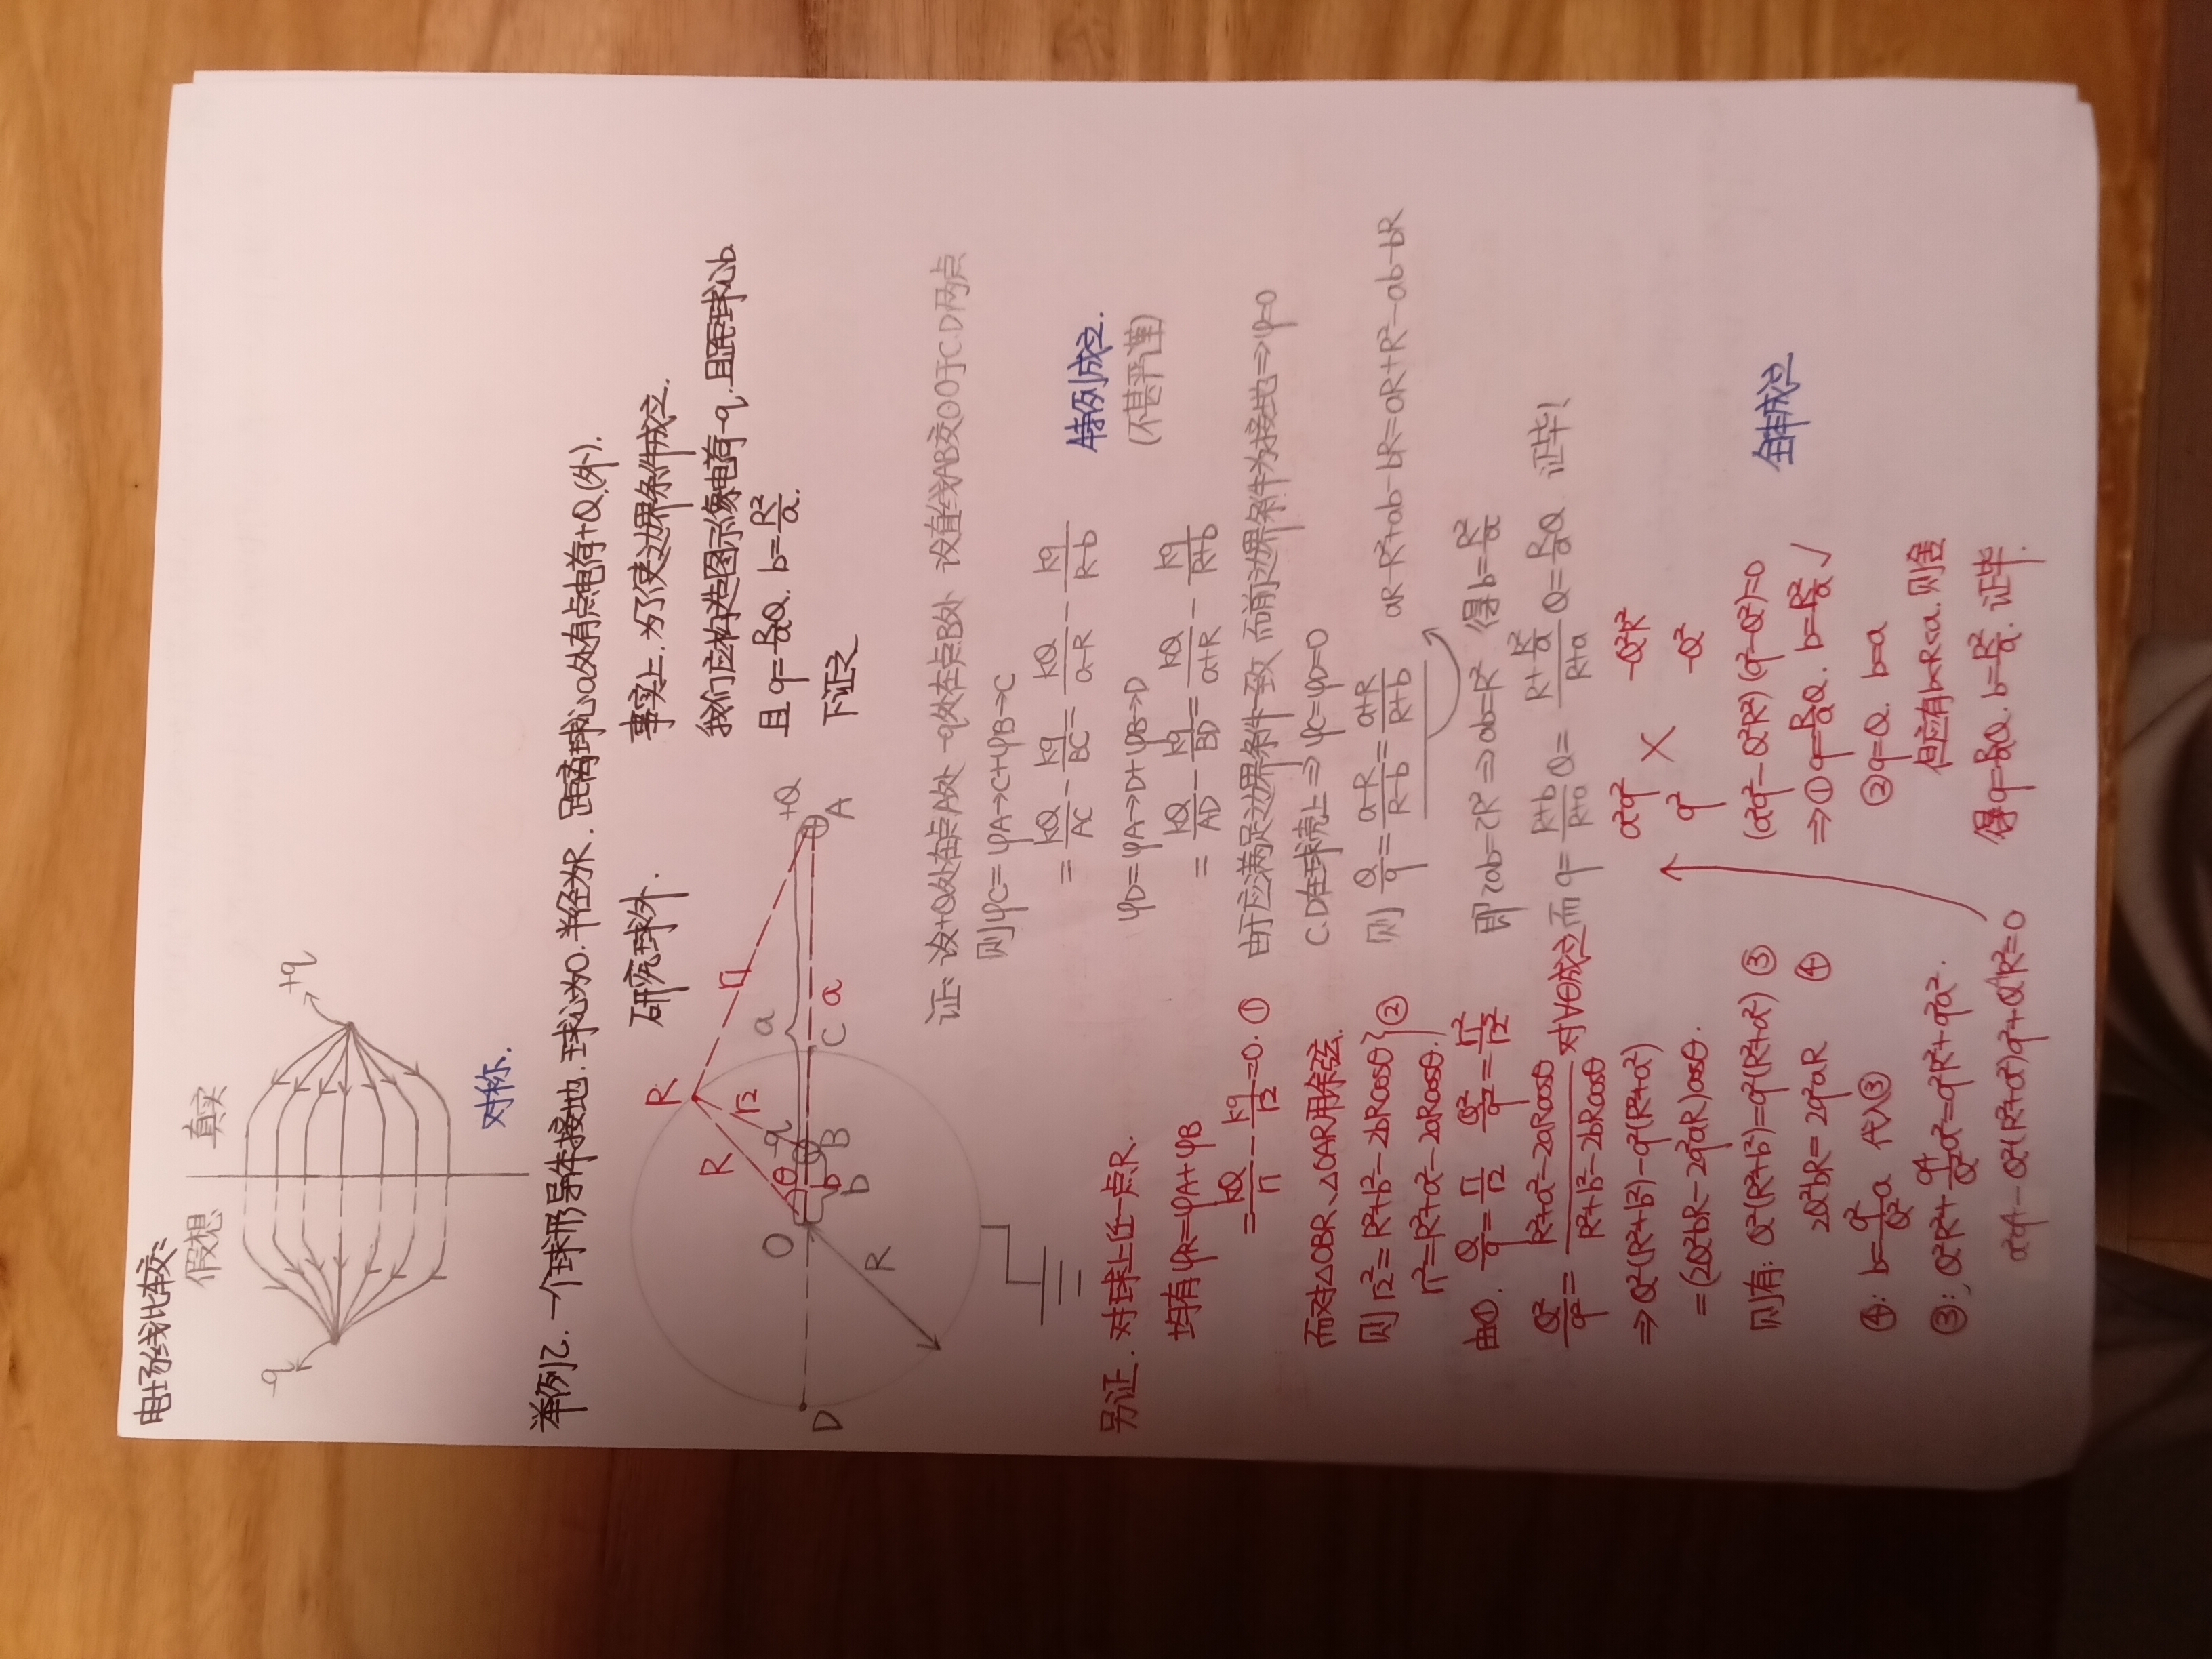 电场线比较:
假想 真实
-q +q
对称.
举例乙. 一个球形导体接地. 球心为O. 半径为R. 距离球心a处有点电荷+Q.(外).
研究球外.
事实上. 为了使边界条件成立.
我们应构造图示像电荷-q. 且距球心b
且 q=\frac{R}{a}Q. b=\frac{R^2}{a}.
下证之
R
R r_2 r_1
a +Q
O θ -q
D b B C a A
b
R
证: 设+Q处在点A处 -q处在点B处 设直线AB交⊙O于C.D两点
则φC=φA→C+φB→C
=\frac{kQ}{AC}-\frac{kq}{BC}=\frac{kQ}{a-R}-\frac{kq}{R-b}
特例成立.
φD=φA→D+φB→D
(不甚严谨)
=\frac{kQ}{AD}-\frac{kq}{BD}=\frac{kQ}{a+R}-\frac{kq}{R+b}
由于应满足边界条件一致 而前边界条件为接地⇒φ=0
C.D在球壳上⇒φC=φD=0
则 \frac{Q}{q}=\frac{a-R}{R-b}=\frac{a+R}{R+b} aR-R^2+ab-bR=aR+R^2-ab-bR
即2ab=2R^2⇒ab=R^2 得b=\frac{R^2}{a}
而q=\frac{R+b}{R+a}Q=\frac{R+\frac{R^2}{a}}{R+a}Q=\frac{R}{a}Q 证毕!
另证. 对球上任一点R.
均有φR=φA+φB
=\frac{kQ}{r_1}-\frac{kq}{r_2}=0. ①
而对△OBR、△OAR用余弦.
则r_2^2=R^2+b^2-2bRcosθ
r_1^2=R^2+a^2-2aRcosθ. } ②
由①. \frac{Q}{q}=\frac{r_1}{r_2} \frac{Q^2}{q^2}=\frac{r_1^2}{r_2^2}
\frac{Q^2}{q^2}=\frac{R^2+a^2-2aRcosθ}{R^2+b^2-2bRcosθ} 对∀θ成立
⇒Q^2(R^2+b^2)-q^2(R^2+a^2)
=(2Q^2bR-2q^2aR)cosθ.
则有: Q^2(R^2+b^2)=q^2(R^2+a^2) ③
2Q^2bR=2q^2aR ④
④: b=\frac{q^2}{Q^2}a 代入③
③: Q^2R^2+\frac{q^4}{Q^2}a^2=q^2R^2+q^2a^2.
a^2q^4-Q^2(R^2+a^2)q^2+Q^4R^2=0
a^2q^2 -Q^2R^2
q^2 -Q^2
(a^2q^2-Q^2R^2)(q^2-Q^2)=0
⇒①q=\frac{R}{a}Q. b=\frac{R^2}{a} √
全部成立
②q=Q. b=a
但应有b<R<a. 则舍
得q=\frac{R}{a}Q. b=\frac{R^2}{a}. 证毕.